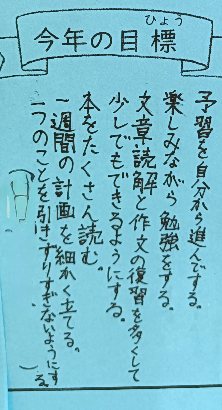 今年の目標
ひょう
予習を自分から進んでする。
楽しみながら勉強をする。
文章読解と作文の復習を多くして
少しでもできるようにする。
本をたくさん読む。
一週間の計画を細かく立てる。
一つのことを引きずりすぎないようにす
る。